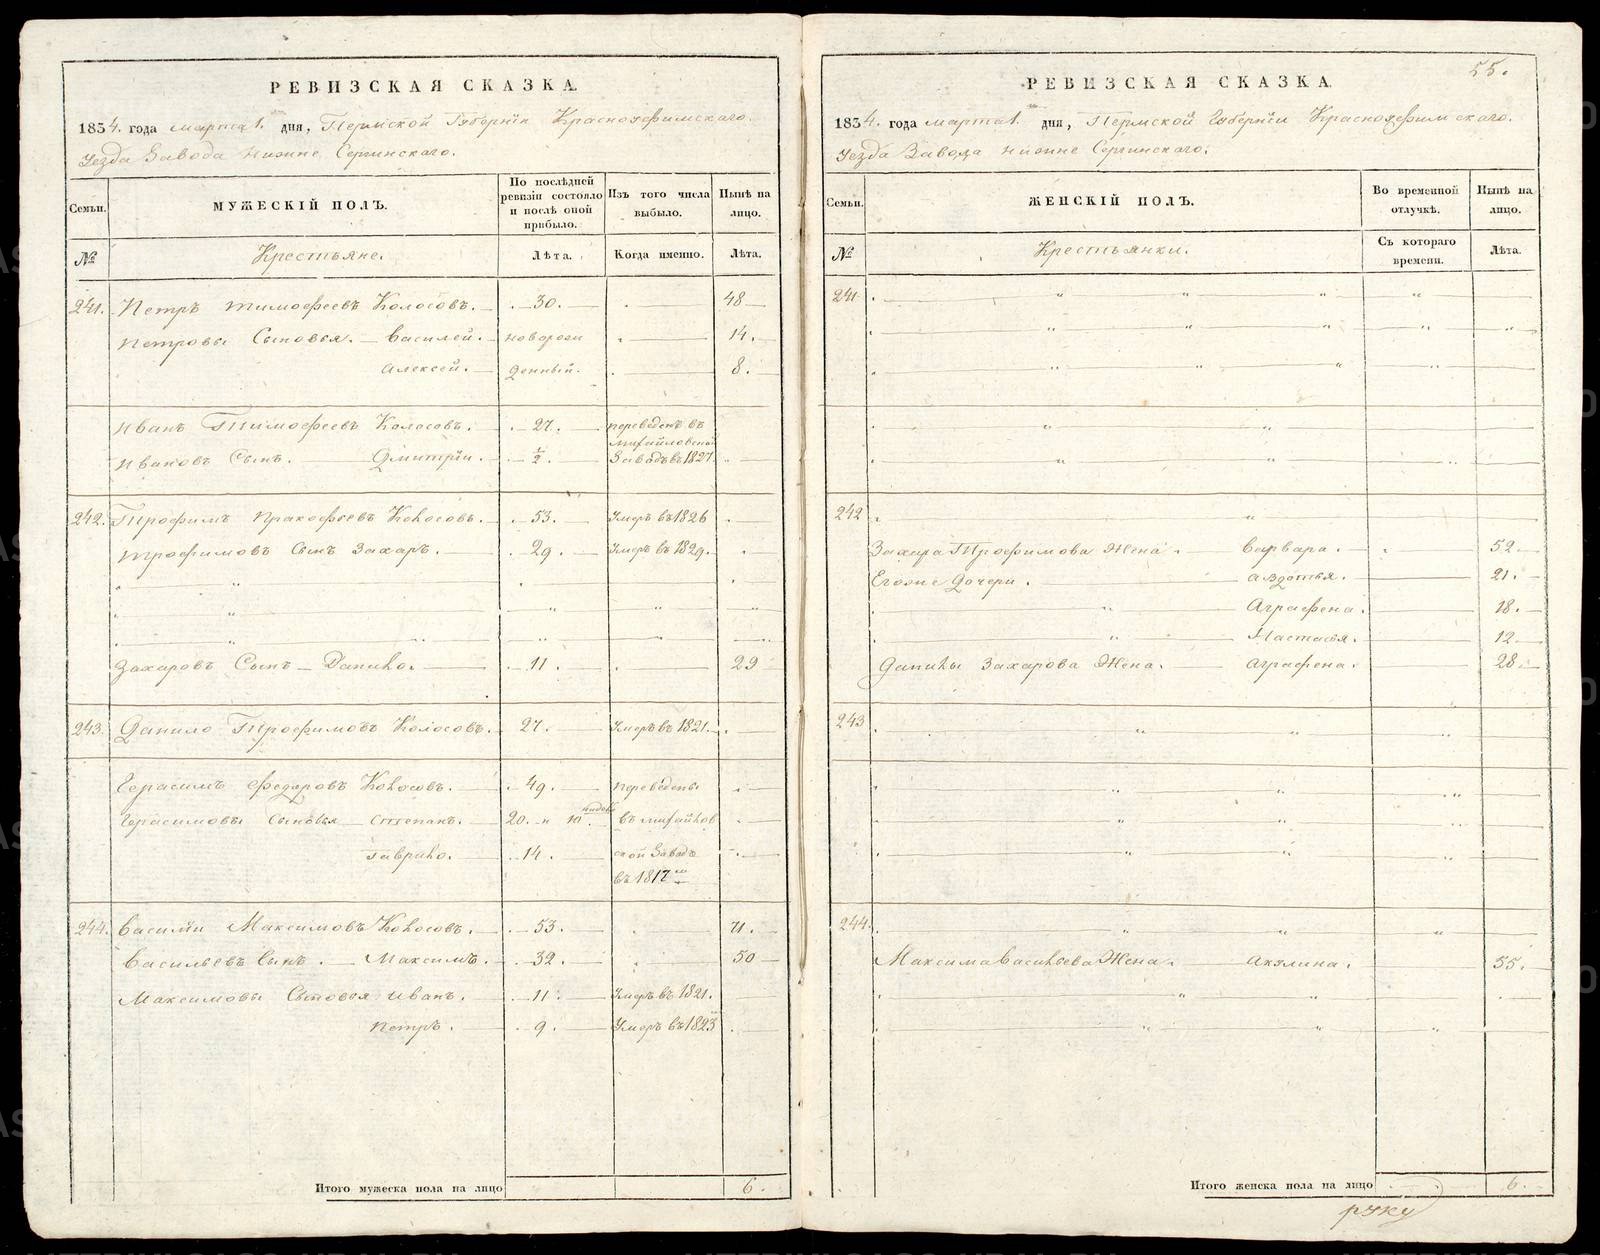 РЕВИЗСКАЯ СКАЗКА.
1834. года марта 1. дня, Пермской Губернїи Красноуфимскаго.
Уезда Завода Нижне Сергинскаго.
Семьи. МУЖЕСКІЙ ПОЛЪ. По послѣдней ревизіи состояло и послѣ оной прибыло. Изъ того числа выбыло. Нынѣ на лицо.
№ Крестьяне. Лѣта. Когда именно. Лѣта.
241. Петръ Тимофеевъ Колосовъ. 30. 48
Петровы Сыновья. Василей. новорож 14.
Алексей. денный. 8.
Иванъ Тимофеевъ Колосовъ. 27. переведенъ въ
Михайловской
Ивановъ Сынъ. Дмитрїи. ½. Заводъ въ 1827.
242. Трофимъ Пракофьевъ Колосовъ. 53. Умеръ въ 1826
Трофимовъ Сынъ Захаръ. 29. Умеръ въ 1829.
Захаровъ Сынъ Данило. 11. 29
243. Данило Трофимовъ Колосовъ. 27. Умеръ въ 1821.
Герасимъ Федоровъ Колосовъ. 49. переведены
Герасимовы Сыновья Степанъ. 20. въ Михайлов
Гаврило. 14. ской Заводъ
въ 1817
244. Василїи Максимовъ Колосовъ. 53. 71.
Васильевъ Сынъ. Максимъ. 32. 50
Максимовы Сыновья Иванъ. 11. Умеръ въ 1821.
Петръ. 9. Умеръ въ 1823
Итого мужеска пола на лицо 6.
55.
РЕВИЗСКАЯ СКАЗКА.
1834. года марта 1. дня, Пермской Губернїи Красноуфимскаго.
Уезда Завода Нижне Сергинскаго.
Семьи. ЖЕНСКІЙ ПОЛЪ. Во временной отлучкѣ. Нынѣ на лицо.
№ Крестьянки. Съ котораго времени. Лѣта.
241
242
Захара Трофимова Жена. Варвара. 52
Егоже Дочери. Авдотья. 21.
Аграфена. 18.
Настасья. 12
Данилы Захарова Жена. Аграфена. 28.
243
244
Максима Васильева Жена. Акулина. 55.
Итого женска пола на лицо 6.
руку